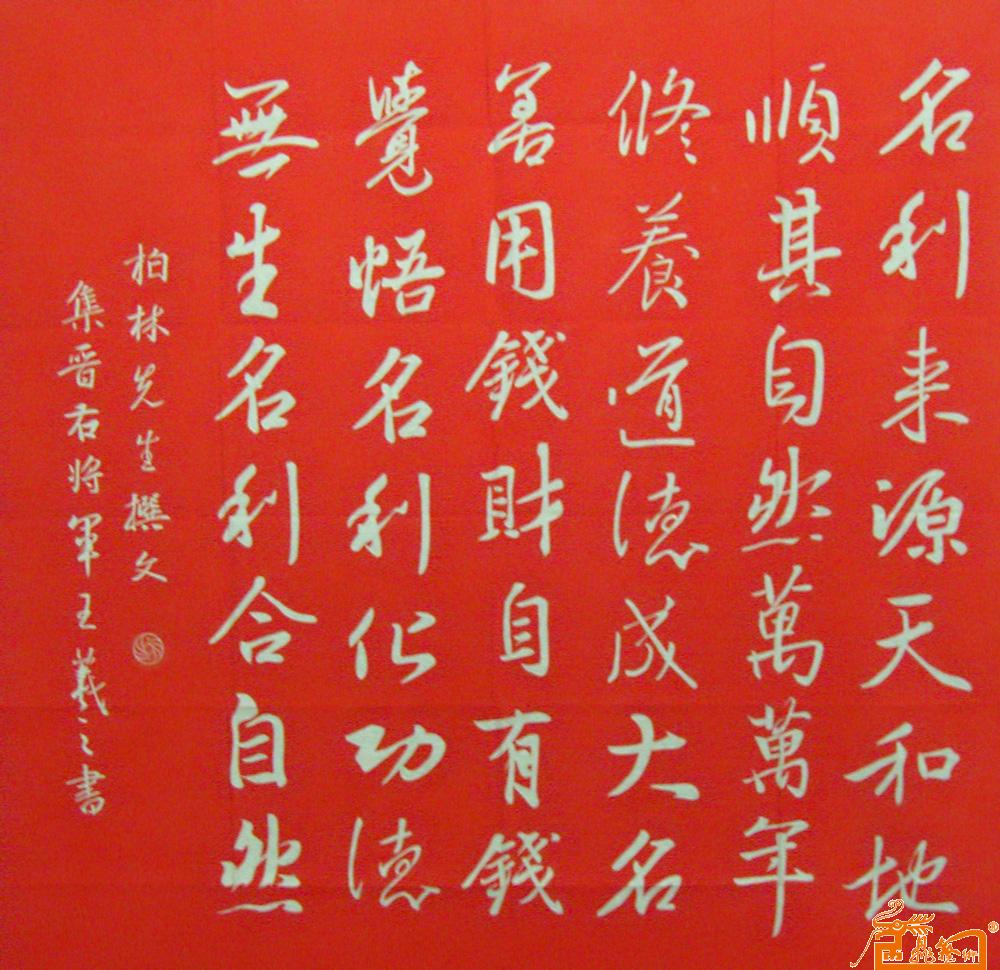 名利来源天和地
順其自然萬萬年
修養道德成大名
善用錢財自有錢
覺悟名利化功德
無生名利合自然
柏林先生撰文
集晋右将軍王羲之書